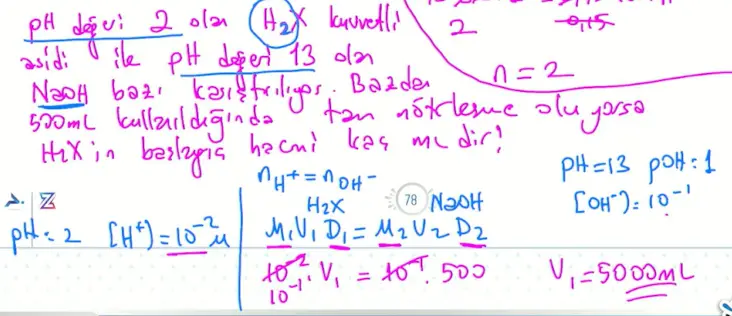 pH değeri 2 olan H₂X kuvvetli
asidi ile pH değeri 13 olan
NaOH bazı karıştırılıyor. Bazdan
500mL kullanıldığında tam nötrleşme oluyorsa
H₂X in başlangıç hacmi kaç mL dir?
2
0,15
n = 2
pH = 2 [H⁺) = 10⁻² M
nH⁺ = nOH⁻
H₂X 78 NaOH
M₁V₁D₁ = M₂V₂D₂
10⁻². V₁ = 10⁻¹. 500
10⁻¹
V₁ = 5000mL
pH = 13 pOH: 1
[OH⁻): 10⁻¹